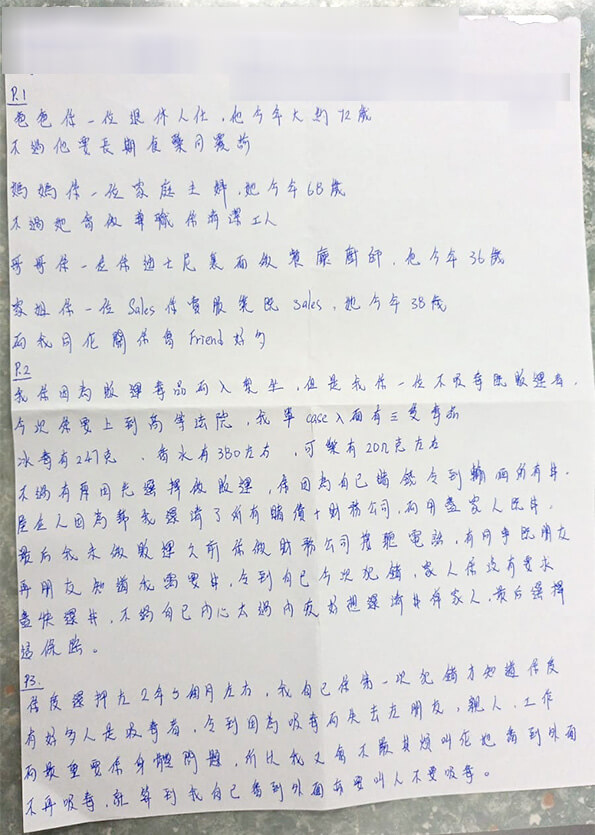 P.1
爸爸係一位退休人仕，他今年大約72歲
不過他要長期食藥同覆診
媽媽係一位家庭主婦，她今年68歲
不過她會做兼職係清潔工人
哥哥係一位係迪士尼裏面做餐廳廚師，他今年36歲
家姐係一位Sales係賣服裝既Sales，她今年38歲
而我同佢關係會Friend好多
P.2
我係因為販運毒品而入獄坐，但是我係一位不吸毒既販運者，
今次係要上到高等法院，我單case入面有三隻毒品
冰毒有247克，香水有380左右，可樂有20几克左右
不過有原因先選擇做販運，係因為自己賭錢令到輸晒所有錢，
屋企人因為幫我還清了所有賭債+財務公司，而用盡家人既錢，
最后我未做販運之前係做財務公司電話，有同事既朋友
再朋友知道我需要錢，令到自己今次犯錯，家人係沒有要求
盡快還錢，不過自己內心太過內疚好想還清錢俾家人，最后選擇
過保險。
P3.
係度還押左2年5個月左右，我自己係第一次犯錯才知道係度
有好多人是吸毒者，令到因為吸毒而失去左朋友，親人，工作
而最重要係身體問題，所以我又會不厭其煩叫佢地番到外面
不再吸毒，就算到我自己番到外面都要叫人不要吸毒。